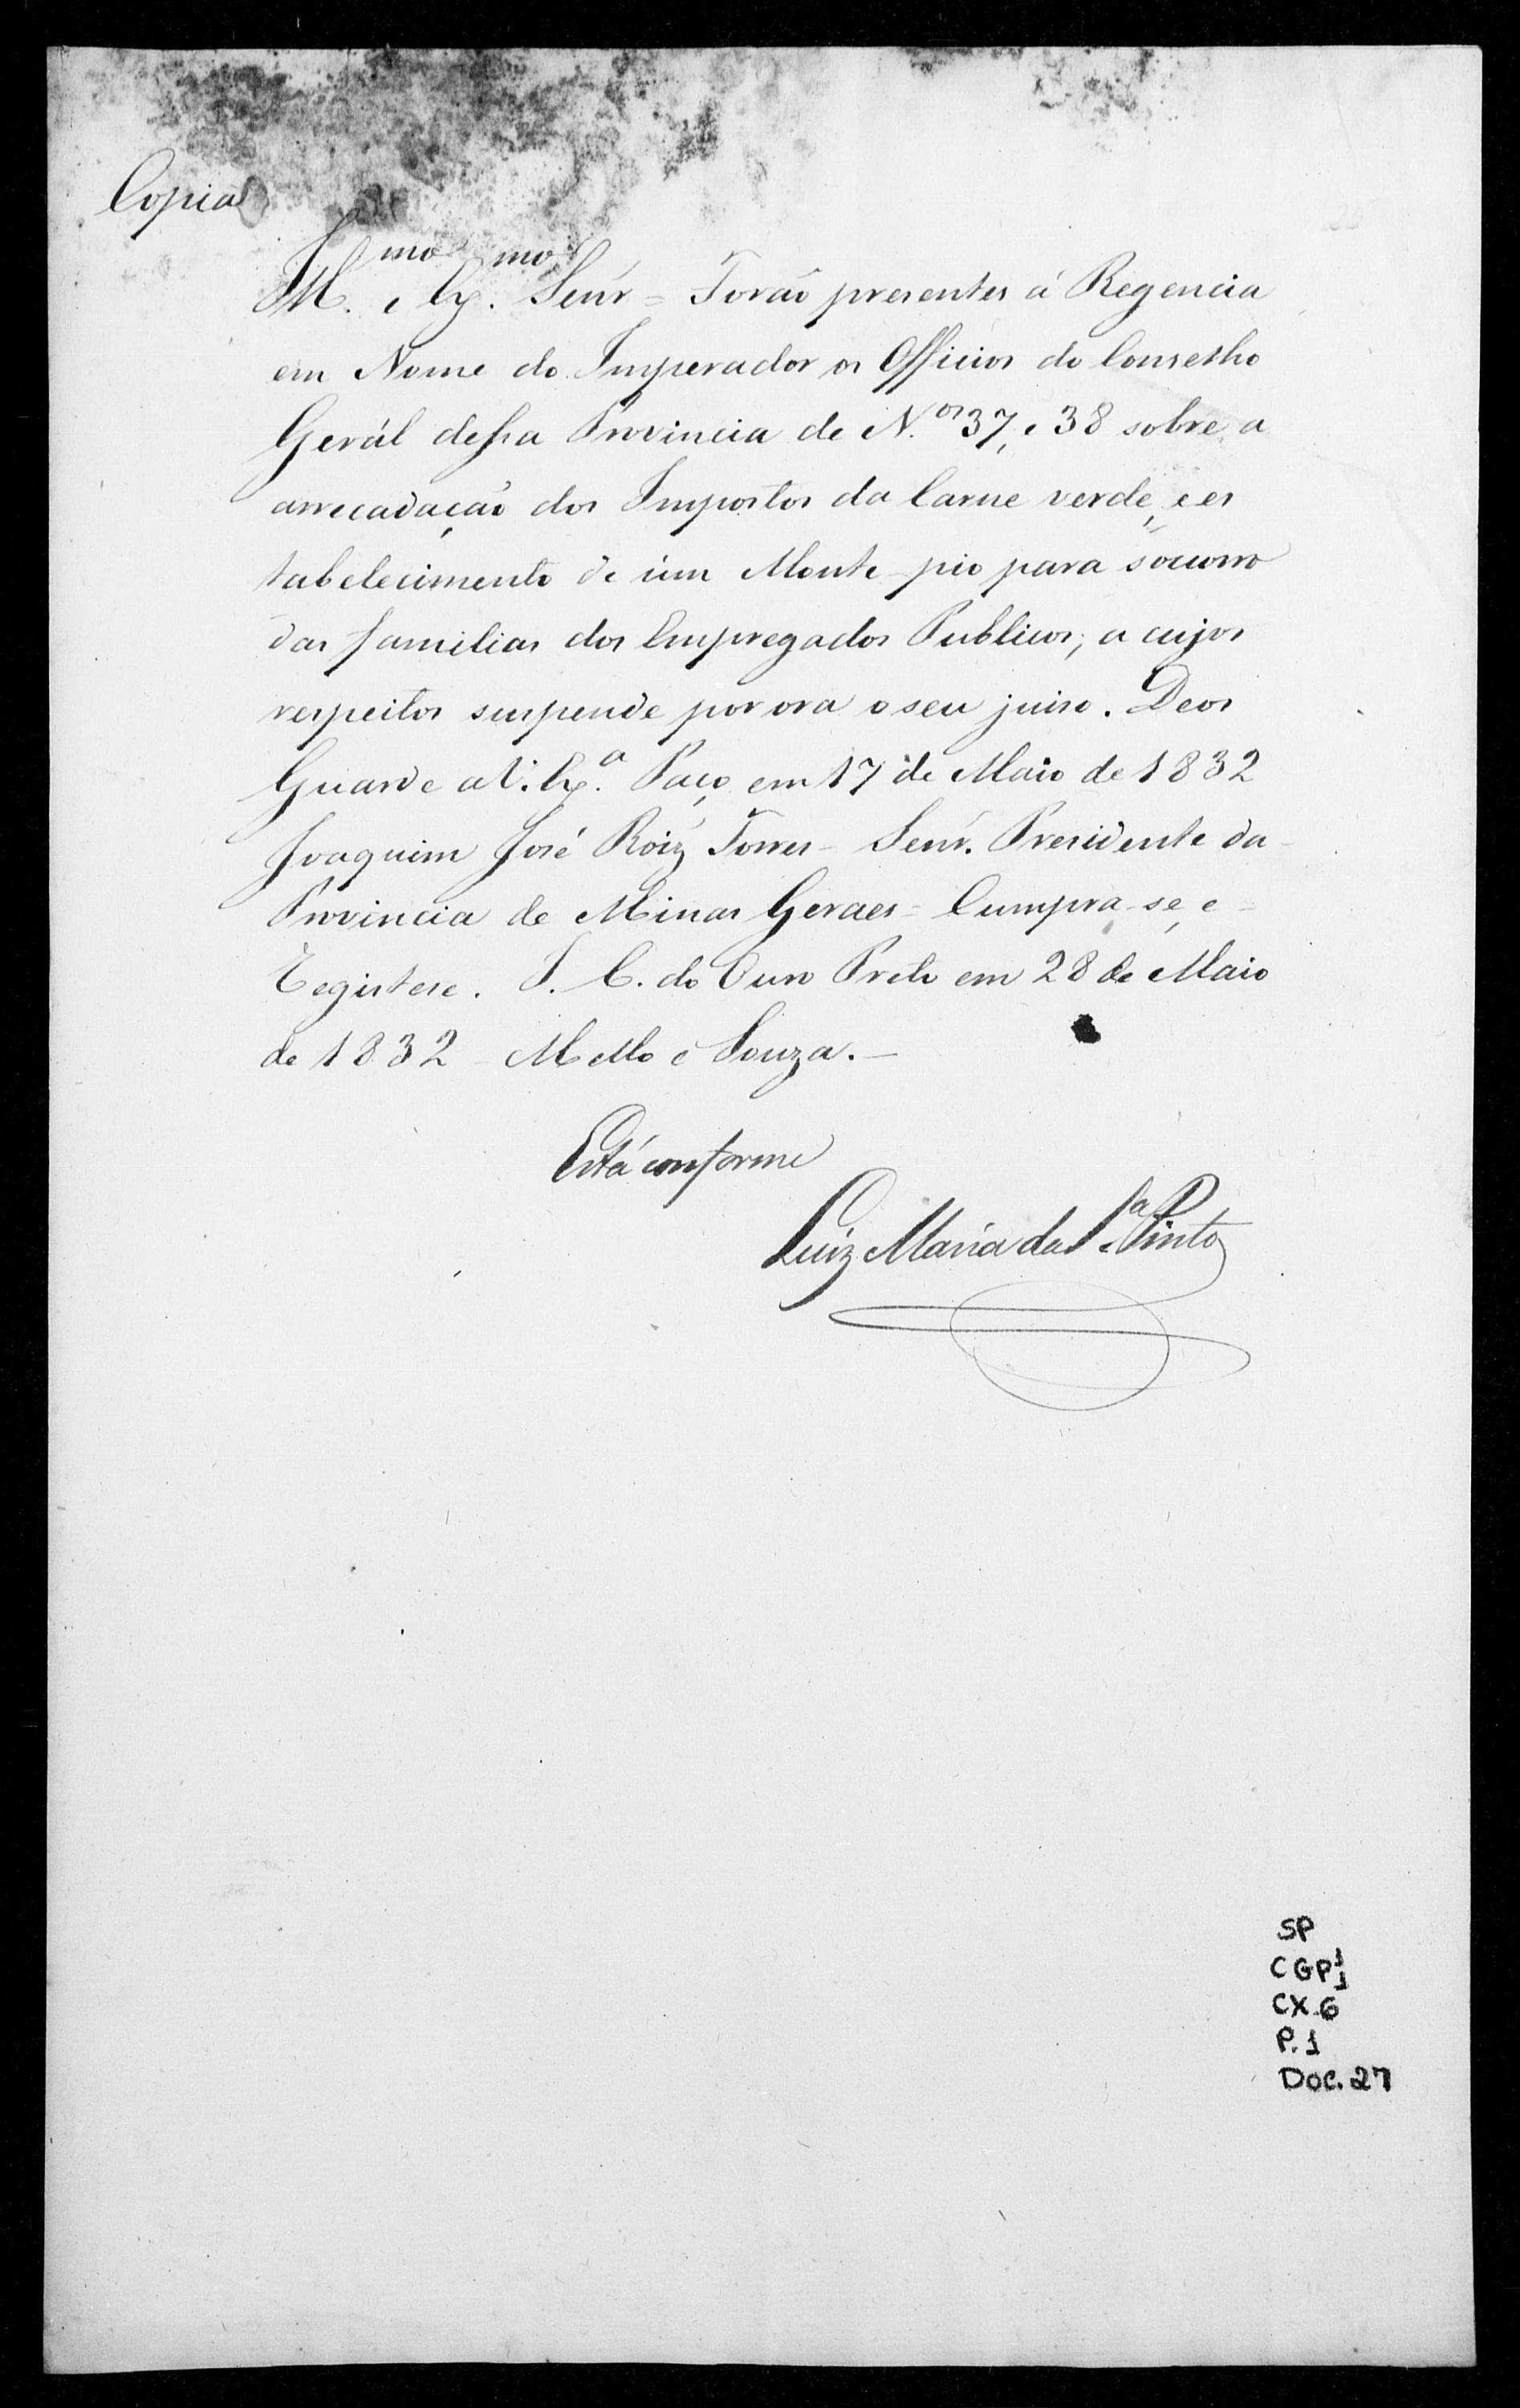 Copia
Ill.mo e Ex.mo Senr = Forão presentes á Regencia
em Nome do Imperador os Officios do Conselho
Gerál dessa Provincia de N.os 37, e 38 sobre a
arrecadação dos Impostos da Carne verde, e es
tabelecimento de um Monte-pio para socorro
das familias dos Empregados Publicos; a cujos
respeitos suspende por ora o seu juiso. Deos
Guarde a V. Ex.a Paço em 17 de Maio de 1832
Joaquim José Roiz Torres - Senr. Presidente da
Provincia de Minas Geraes = Cumpra-se, e
registese. I. C. do Ouro Preto em 28 de Maio
de 1832 - Mello e Souza. -
Está conforme
Luiz Maria da S.a Pinto
SP
CGP 1/1
CX.6
P.1
DOC.27